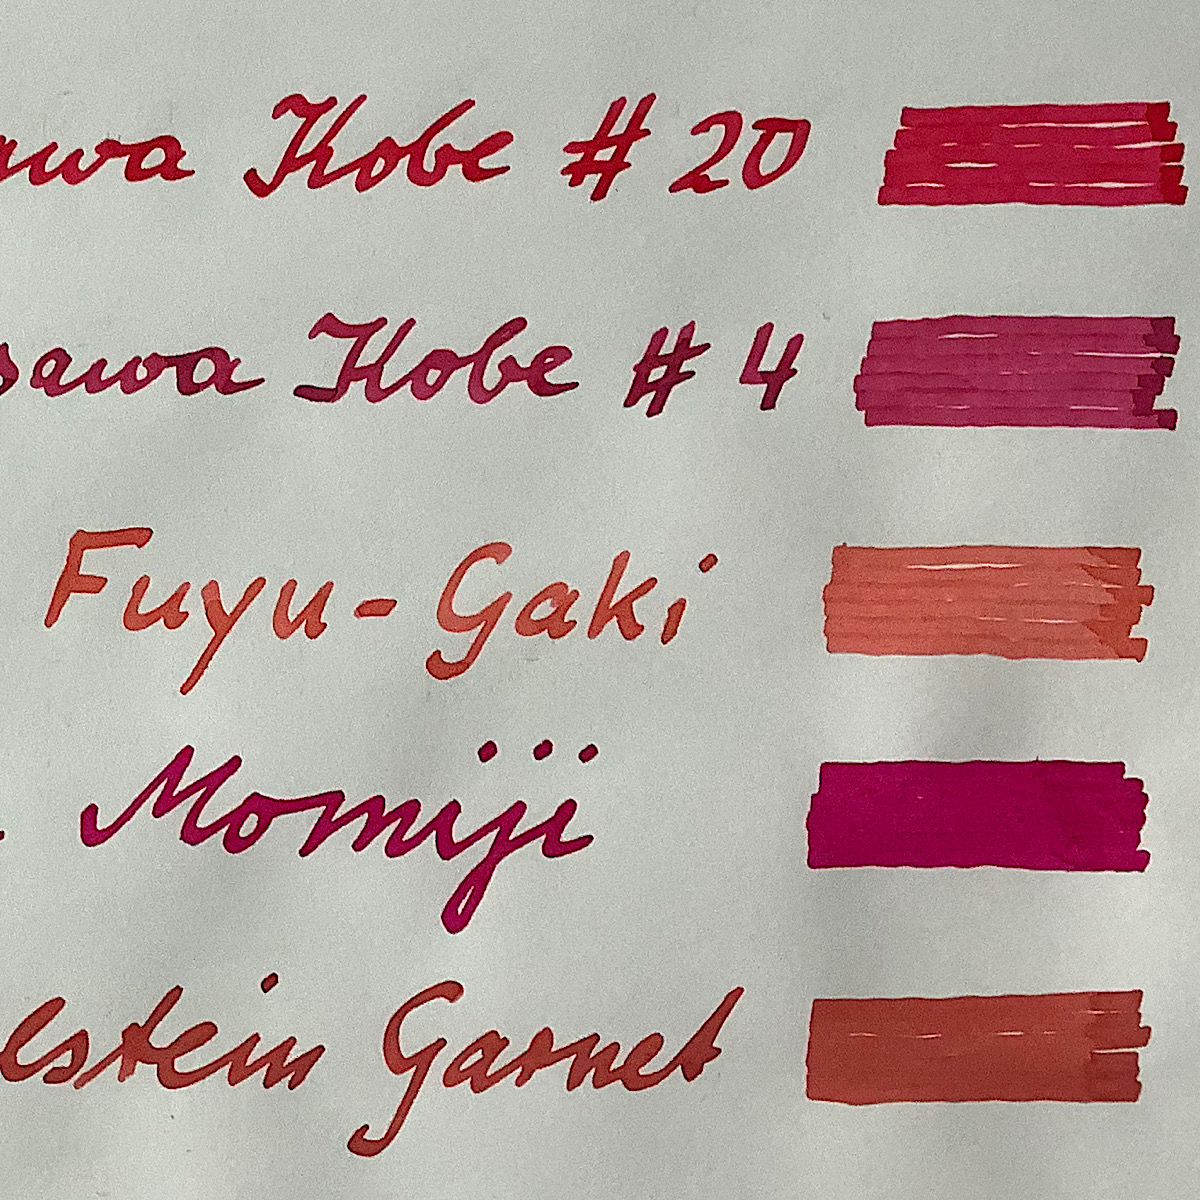 awa Kobe # 20
sawa Kobe # 4
Fuyu-Gaki
Momiji
elstein Garnet